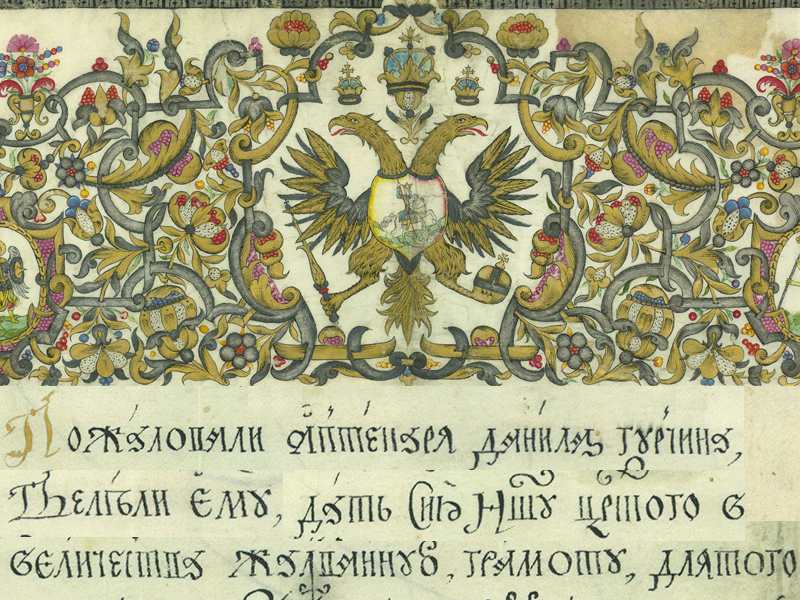 Пожаловали аптекаря данила гурчина,
Велѣли ему, дать сию нш҃у црⷭ҇того в
величества жалванную, грамоту, длятого